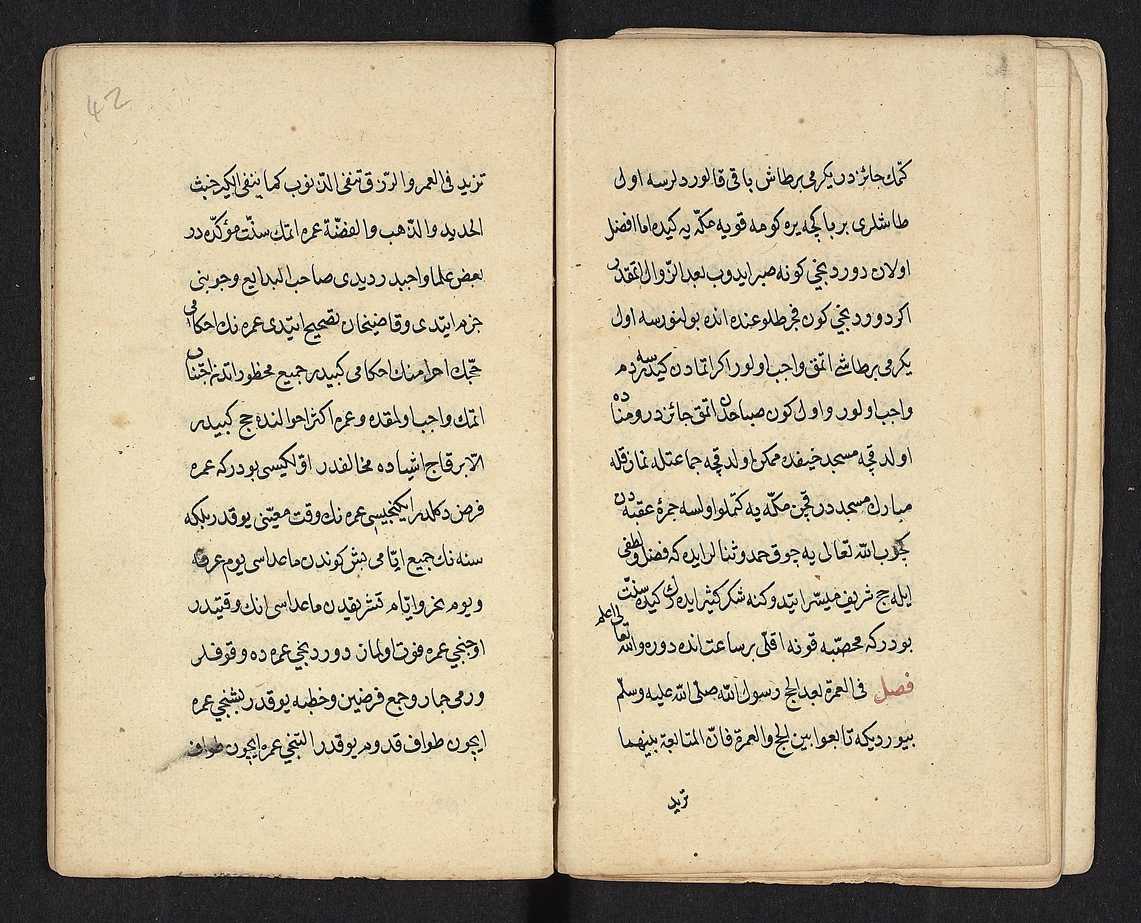 كتمك جائزدر يكرمى بر طاش باقى قالور ديلرسه اول
طاشلرى بر باكچه يره كومه قويه مكّه يه كيده اما افضل
اولان دوردنجى كونه صبر ايدوب بعد الزّوال اتمقدر
اكر دوردنجى كون فجر طلوعنده انده بولنورسه اول
يكرمى بر طاشى اتمق واجب اولور اكر اتمادن كيدرسه دم
واجب اولور و اول كون صباحدن اتمق جائزدر و مناده
اولدقچه مسجد خيفده ممكن اولدقچه جماعتله نماز قله
مبارك مسجددر قچن مكّه يه كتملو اولسه جمرهٔ عقبه دن
كچوب الله تعالى يه چوق حمد و ثنالر ايده كه فضل و لطفى
ايله حج شريف ميسّر ايتدوكنه شكر كثير ايده رك كيده سنّت
بودر كه محصّبه قونه اقلّى بر ساعت انده دوره والله تعالى اعلم
فصل فى العمرة بعد الحج رسول الله صلّى الله عليه وسلّم
بيورديكه تابعوا بين الحج والعمرة فانّ المتابعة بينهما
تزيد
42
تزيد فى العمر والرّزق تنفى الذنوب كما ينفى الكير خبث
الحديد والذّهب والفضّة عمره اتمك سنّت مؤكّده در
بعض علما واجبدر ديدى صاحب البدايع وجوبنى
جزم ايتدى و قاضيخان تصحيح ايتدى عمره نك احكامى
حجّك احرامنك احكامى كبيدر جميع محظوراتدن اجتناب
اتمك واجب اولمقده و عمره اكثر احوالنده حج كبيدر
الّا بر قاچ اشياده مخالفدر اوّلكيسى بودر كه عمره
فرض دكلدر ايكنجيسى عمره نك وقت معيّنى يوقدر بلكه
سنه نك جميع ايّامى بش كوندن ماعداسى يوم عرفه
و يوم نحر و ايّام تشريقدن ماعداسى انك وقتيدر
اوچنجى عمره فوت اولمان دوردنجى عمره ده وقوفلر
و رمى جمار و جمع فرضين و خطبه يوقدر بشنجى عمره
ايچون طواف قدوم يوقدر التنجى عمره ايچون طواف